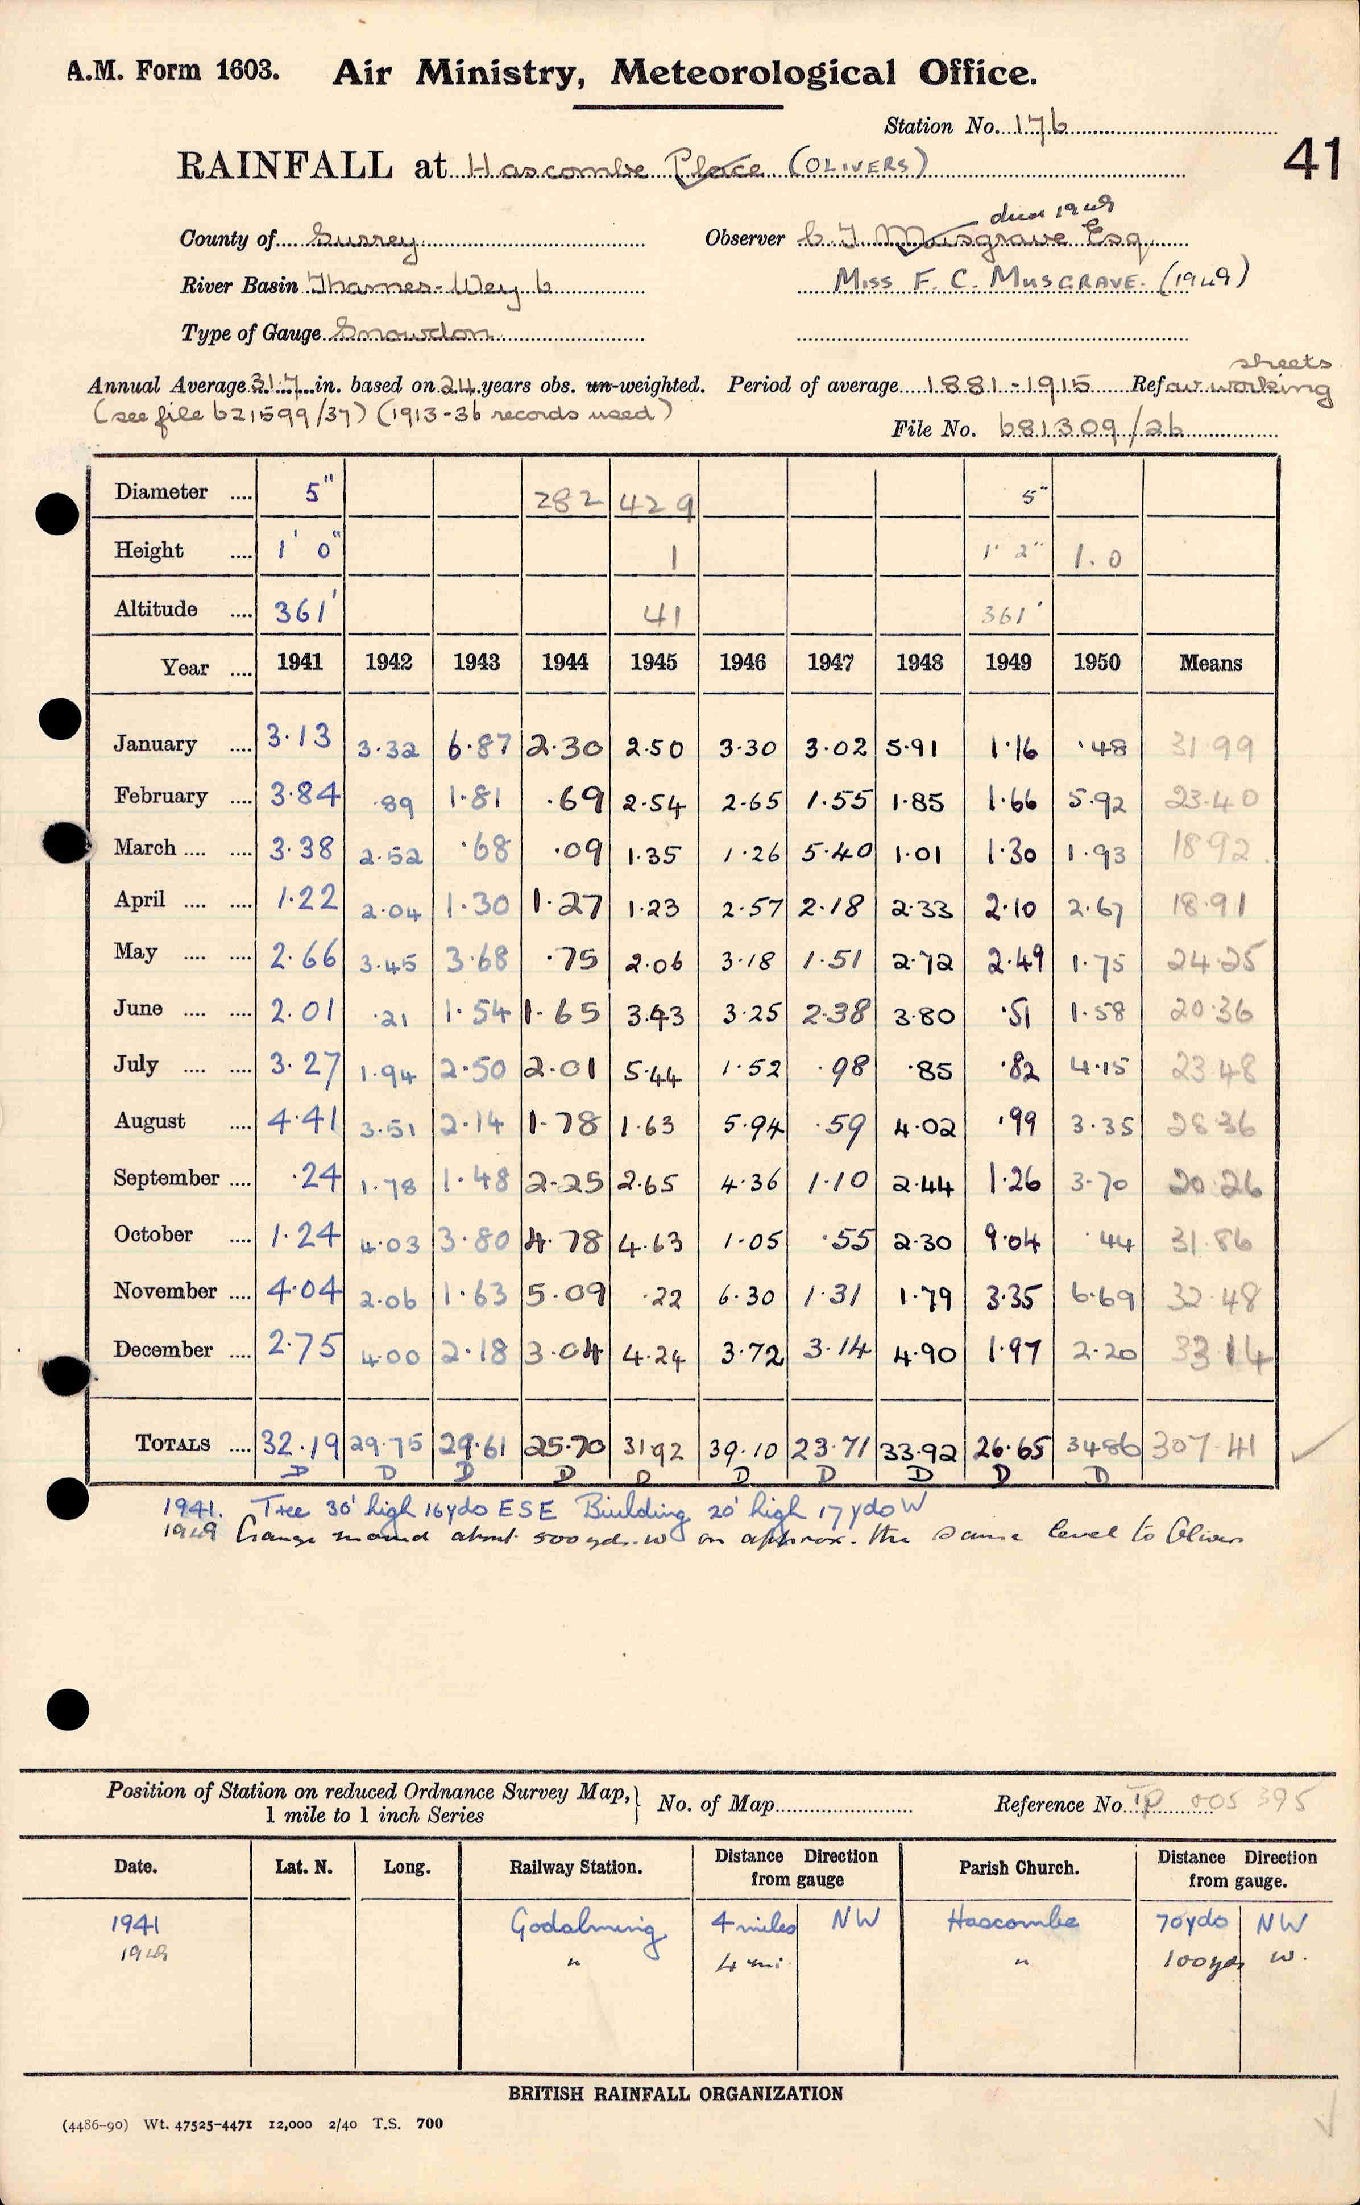 A.M. Form 1603. Air Ministry, Meteorological Office.
Station No. 176
41
RAINFALL at Hascombe Place (OLIVERS)
died 1949
County of Surrey Observer C. T. Musgrave Esq.
River Basin Thames-Wey b MISS F. C. MUSGRAVE. (1949)
Type of Gauge Snowdon
sheets
Annual Average 31.7 in. based on 24 years obs. un-weighted. Period of average 1881-1915 Ref av working
(see file 621599/37) (1913-36 records used)
File No. 681309/26
Diameter .... 5" 282 429 5"
Height .... 1' 0" 1 1' 2" 1.0
Altitude .... 361' 41 361'
Year .... 1941 1942 1943 1944 1945 1946 1947 1948 1949 1950 Means
January .... 3.13 3.32 6.87 2.30 2.50 3.30 3.02 5.91 1.16 .48 31.99
February .... 3.84 .89 1.81 .69 2.54 2.65 1.55 1.85 1.66 5.92 23.40
March .... .... 3.38 2.52 .68 .09 1.35 1.26 5.40 1.01 1.30 1.93 18.92
April .... .... 1.22 2.04 1.30 1.27 1.23 2.57 2.18 2.33 2.10 2.67 18.91
May .... .... 2.66 3.45 3.68 .75 2.06 3.18 1.51 2.72 2.49 1.75 24.25
June .... .... 2.01 .21 1.54 1.65 3.43 3.25 2.38 3.80 .51 1.58 20.36
July .... .... 3.27 1.94 2.50 2.01 5.44 1.52 .98 .85 .82 4.15 23.48
August .... 4.41 3.51 2.14 1.78 1.63 5.94 .59 4.02 .99 3.35 28.36
September .... .24 1.78 1.48 2.25 2.65 4.36 1.10 2.44 1.26 3.70 20.26
October .... 1.24 4.03 3.80 4.78 4.63 1.05 .55 2.30 9.04 .44 31.86
November .... 4.04 2.06 1.63 5.09 .22 6.30 1.31 1.79 3.35 6.69 32.48
December .... 2.75 4.00 2.18 3.04 4.24 3.72 3.14 4.90 1.97 2.20 33.14
TOTALS .... 32.19 29.75 29.61 25.70 31.92 39.10 23.71 33.92 26.65 34.86 307.41
D D D D D D D D D D
1941. Tree 30' high 16yds ESE Building 20' high 17yds W
1949 Gauge moved about 500yds. W on approx. the same level to Olivers
Position of Station on reduced Ordnance Survey Map,
1 mile to 1 inch Series
No. of Map Reference No. 005 395
Date. Lat. N. Long. Railway Station. Distance Direction from gauge Parish Church. Distance Direction from gauge.
1941 Godalming 4 miles NW Hascombe 70yds NW
1949 " 4 mi " 100yds W.
BRITISH RAINFALL ORGANIZATION
(4486-90) Wt. 47525-4471 12,000 2/40 T.S. 700